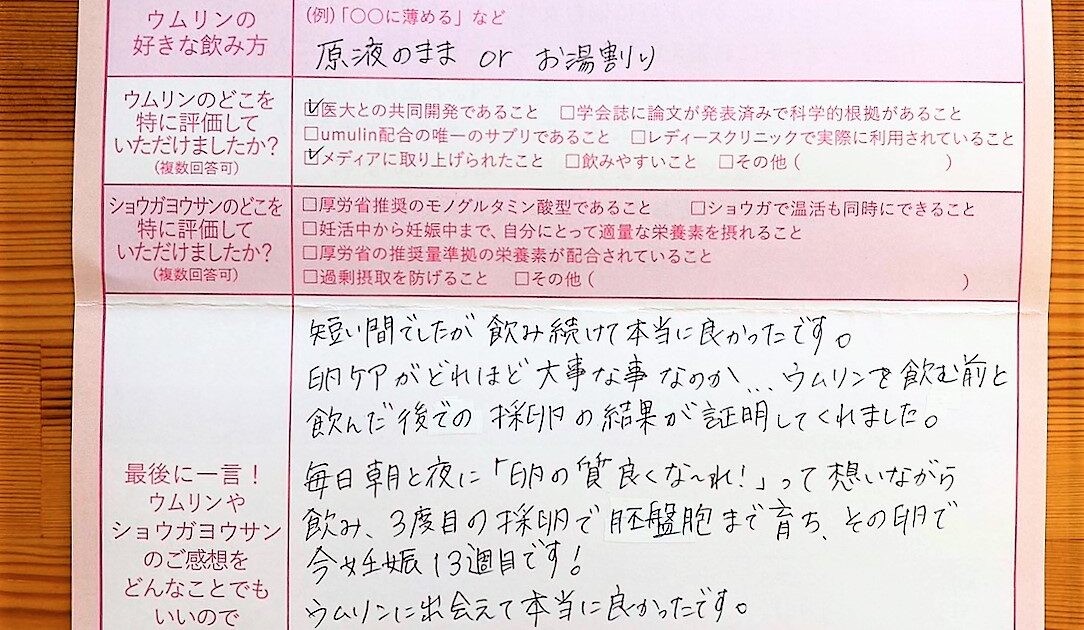 ウムリンの
好きな飲み方
(例)「〇〇に薄める」など
原液のまま or お湯割り
ウムリンのどこを
特に評価して
いただけましたか?
(複数回答可)
☑医大との共同開発であること □学会誌に論文が発表済みで科学的根拠があること
□umulin配合の唯一のサプリであること □レディースクリニックで実際に利用されていること
☑メディアに取り上げられたこと □飲みやすいこと □その他( )
ショウガヨウサンのどこを
特に評価して
いただけましたか?
(複数回答可)
□厚労省推奨のモノグルタミン酸型であること □ショウガで温活も同時にできること
□妊活中から妊娠中まで、自分にとって適量な栄養素を摂れること
□厚労省の推奨量準拠の栄養素が配合されていること
□過剰摂取を防げること □その他( )
最後に一言!
ウムリンや
ショウガヨウサン
のご感想を
どんなことでも
いいので
短い間でしたが飲み続けて本当に良かったです。
卵ケアがどれほど大事な事なのか…ウムリンを飲む前と
飲んだ後での採卵の結果が証明してくれました。
毎日朝と夜に「卵の質良くな〜れ!」って想いながら
飲み、3度目の採卵で胚盤胞まで育ち、その卵で
今妊娠13週目です!
ウムリンに出会えて本当に良かったです。